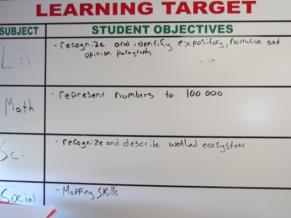 LEARNING TARGET
SUBJECT STUDENT OBJECTIVES
LA - recognize and identify expository, narrative and
opinion paragraphs
Math - represent numbers to 100 000
Sc. - recognize and describe wetland ecosystem
Social - Mapping skills